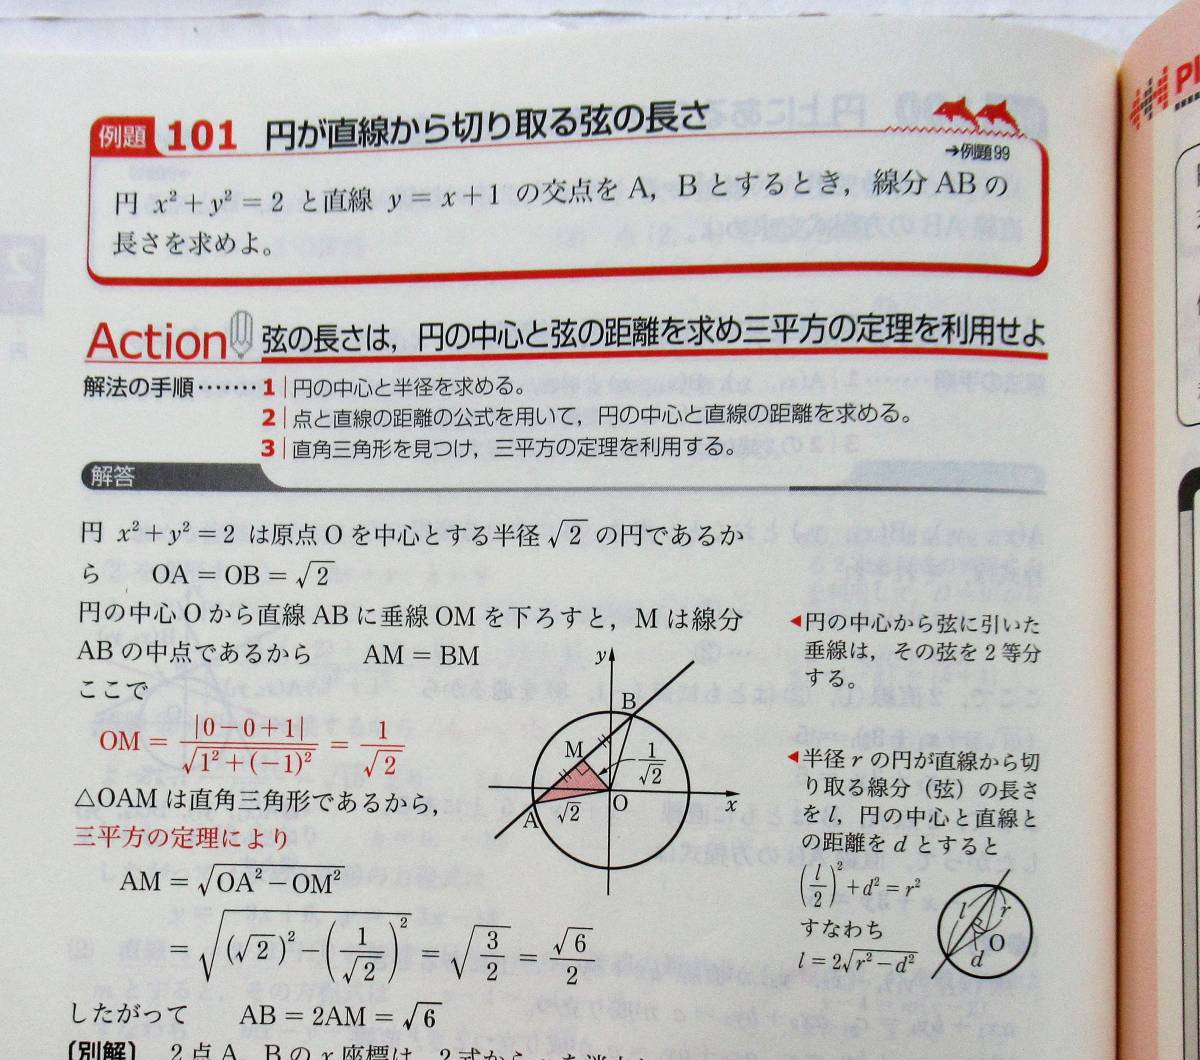 例題 101 円が直線から切り取る弦の長さ
→例題99
円 x²+y²=2 と直線 y=x+1 の交点をA, Bとするとき, 線分ABの
長さを求めよ。
Action 弦の長さは, 円の中心と弦の距離を求め三平方の定理を利用せよ
解法の手順……1 円の中心と半径を求める。
2 点と直線の距離の公式を用いて, 円の中心と直線の距離を求める。
3 直角三角形を見つけ, 三平方の定理を利用する。
解答
円 x²+y²=2 は原点Oを中心とする半径 √2 の円であるか
ら OA=OB=√2
円の中心Oから直線ABに垂線OMを下ろすと, Mは線分
ABの中点であるから AM=BM
ここで
OM = |0−0+1| / √(1²+(−1)²) = 1/√2
△OAMは直角三角形であるから,
三平方の定理により
AM=√(OA²−OM²)
=√((√2)²−(1/√2)²) = √(3/2) = √6/2
したがって AB=2AM=√6
〔別解〕 2点A, Bのx座標は, 2式から
y
B
M
1/√2
O
x
A
√2
◀円の中心から弦に引いた
垂線は, その弦を2等分
する。
◀半径 r の円が直線から切
り取る線分（弦）の長さ
を l, 円の中心と直線と
の距離を d とすると
(l/2)²+d²=r²
すなわち
l=2√(r²−d²)
l
r
O
d